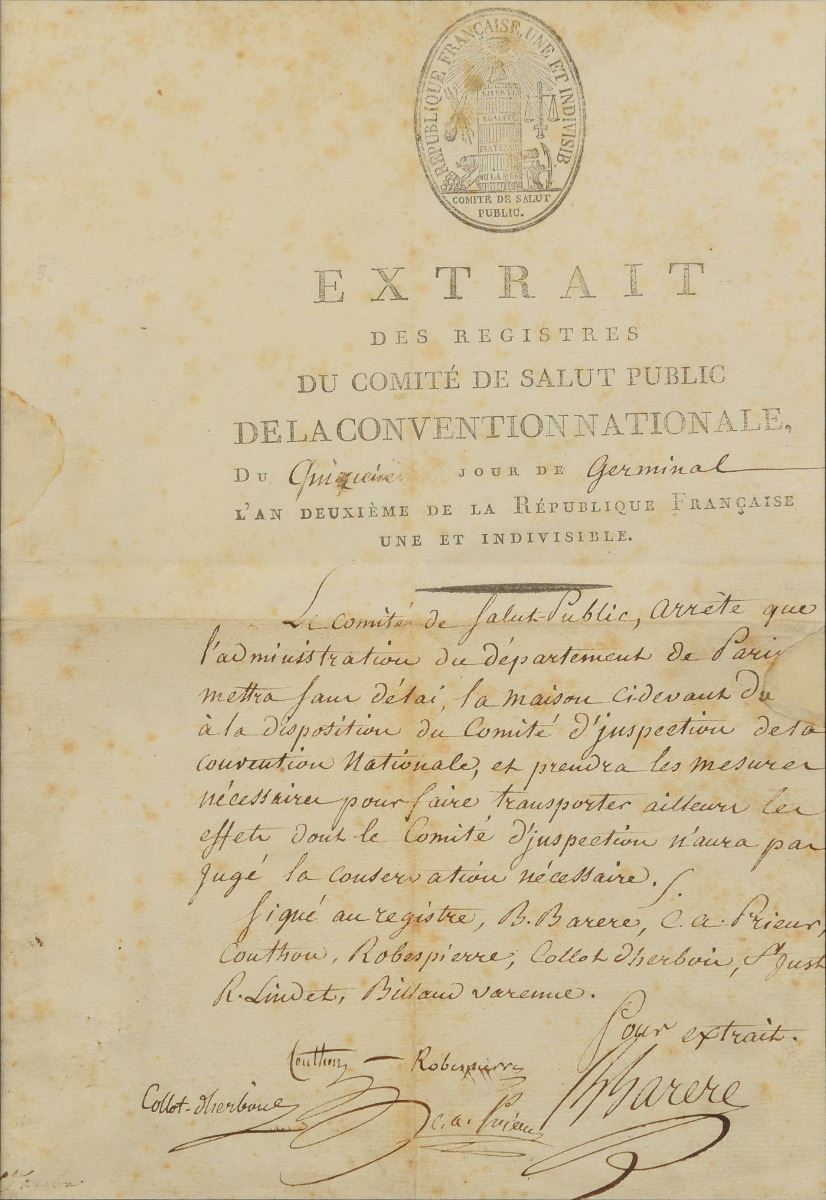 RÉPUBLIQUE FRANÇAISE, UNE ET INDIVISIB
LIBERTÉ
ÉGALITÉ
FRATER
OU LA MORT
COMITÉ DE SALUT
PUBLIC.
EXTRAIT
DES REGISTRES
DU COMITÉ DE SALUT PUBLIC
DE LA CONVENTION NATIONALE,
DU JOUR DE Germinal
L'AN DEUXIÈME DE LA RÉPUBLIQUE FRANÇAISE
UNE ET INDIVISIBLE.
Le Comité de Salut-Public, arrête que
l'administration du département de Paris
mettra sans délai, la maison cidevant du
à la disposition du Comité d'inspection de la
convention Nationale, et prendra les mesures
nécessaires pour faire transporter ailleurs les
effets dont le Comité d'inspection n'aura pas
jugé la conservation nécessaire.
Signé au registre, B. Barere, C. a. Prieur,
Couthon, Robespierre, Collot dherbois, St Just
R. Lindet, Billaud varenne.
Pour extrait.
Couthon — Robespierre
Collot-dherbois C. a. Prieur B Barere